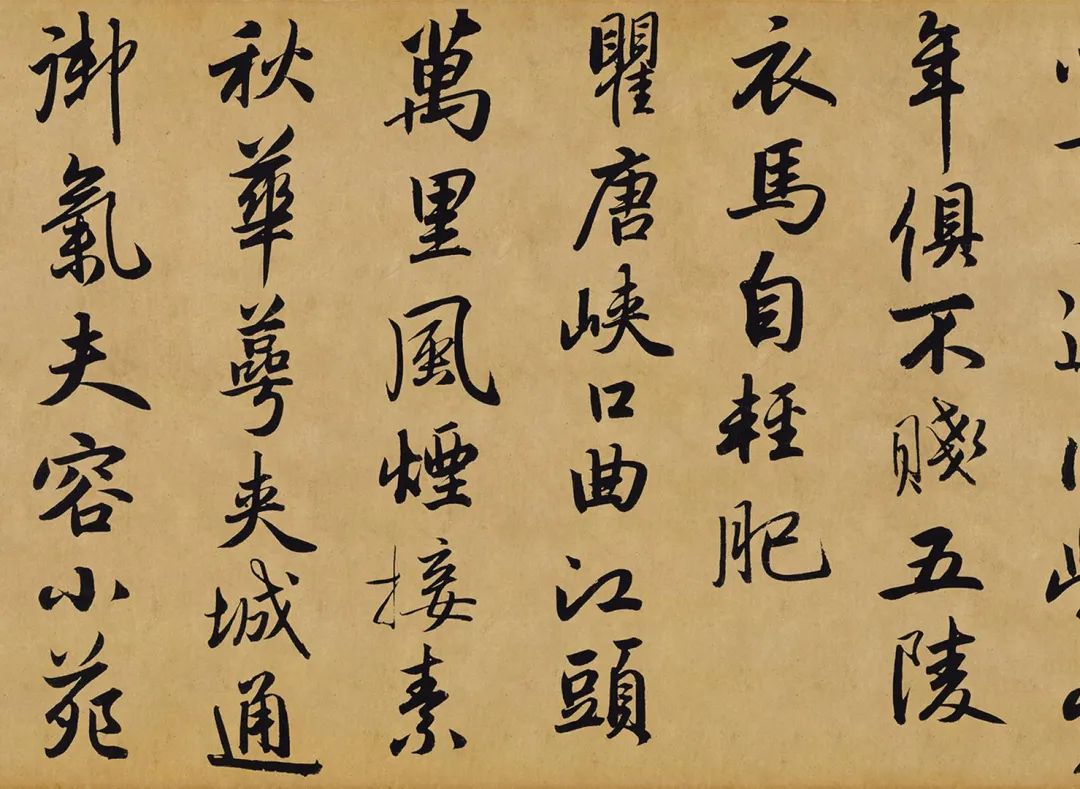 年俱不賤五陵
衣馬自輕肥
瞿唐峽口曲江頭
萬里風煙接素
秋華萼夾城通
御氣夫容小苑